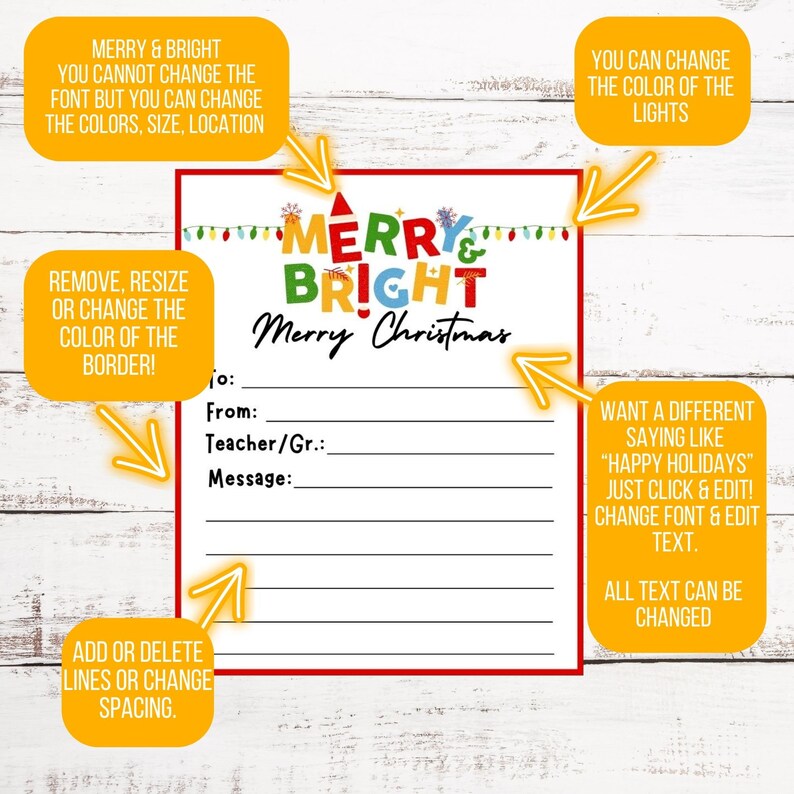 MERRY & BRIGHT
YOU CANNOT CHANGE THE
FONT BUT YOU CAN CHANGE
THE COLORS, SIZE, LOCATION
YOU CAN CHANGE
THE COLOR OF THE
LIGHTS
REMOVE, RESIZE
OR CHANGE THE
COLOR OF THE
BORDER!
MERRY &
BRIGHT
Merry Christmas
To:
From:
Teacher/Gr.:
Message:
WANT A DIFFERENT
SAYING LIKE
“HAPPY HOLIDAYS”
JUST CLICK & EDIT!
CHANGE FONT & EDIT
TEXT.
ALL TEXT CAN BE
CHANGED
ADD OR DELETE
LINES OR CHANGE
SPACING.